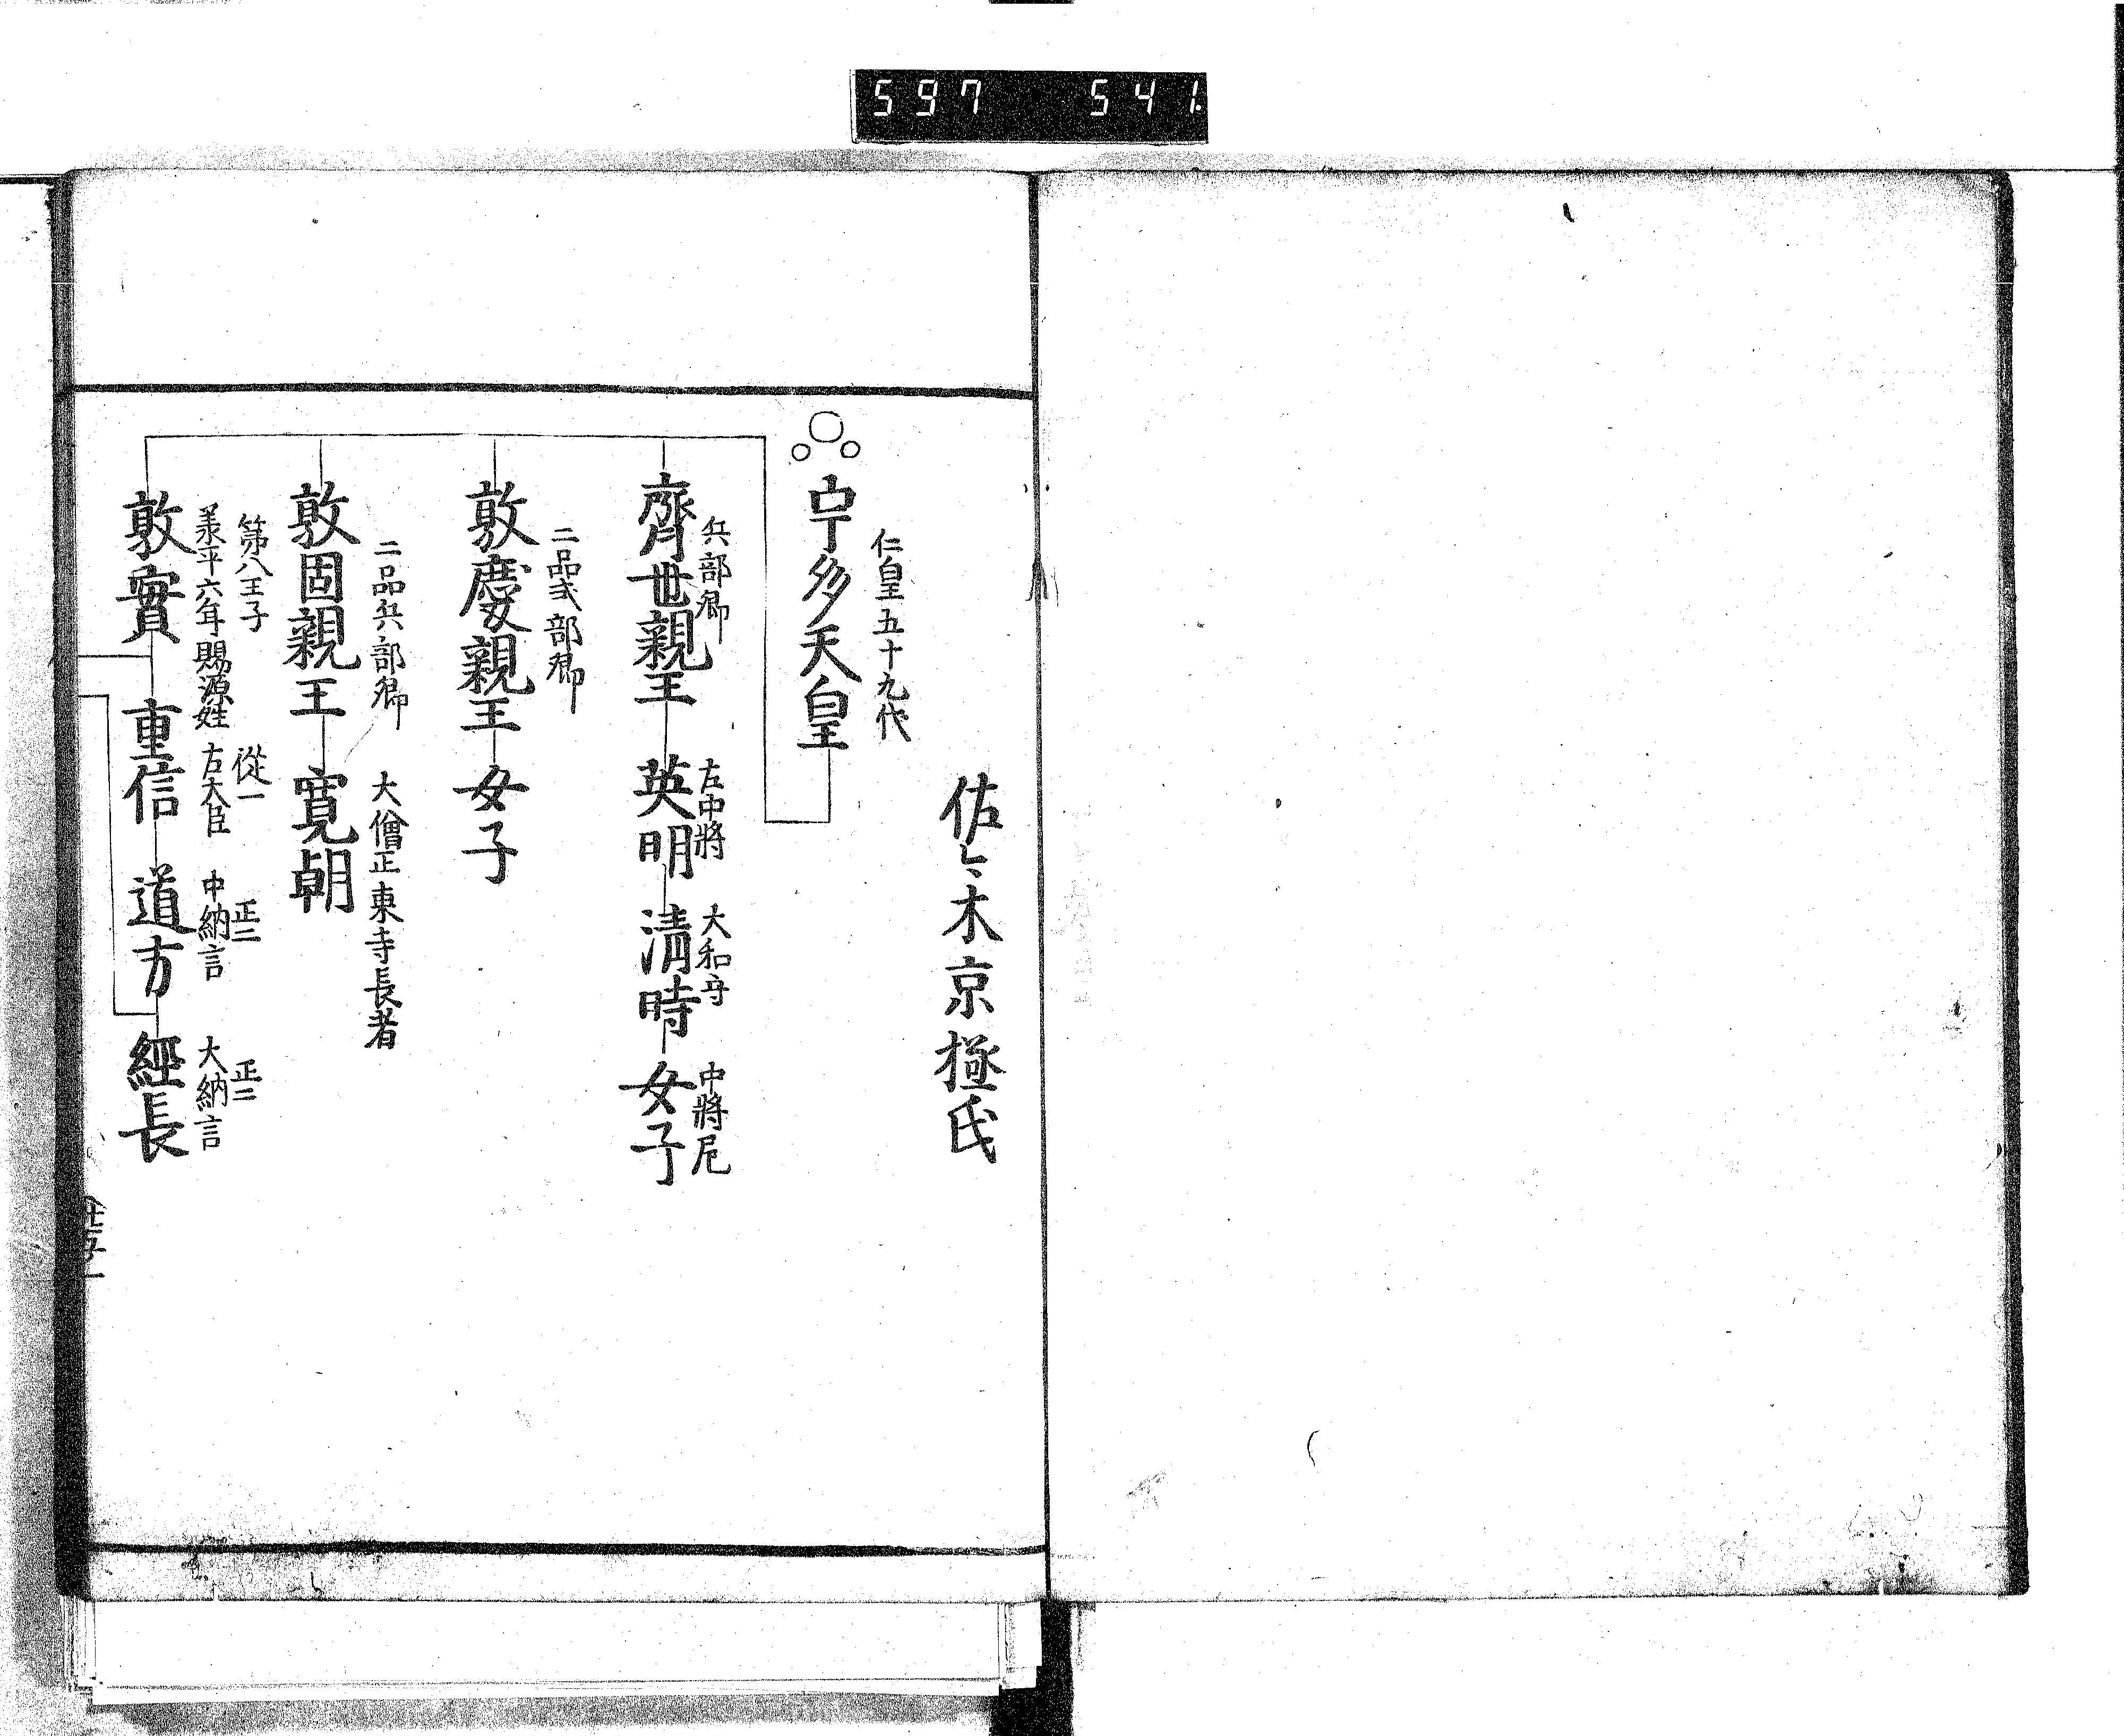 597 541
佐々木京極氏
仁皇五十九代
宇多天皇
兵部卿
齊世親王
左中將
英明
大和守
清時
中將尼
女子
二品式部卿
敦慶親王
女子
二品兵部卿
敦固親王
大僧正東寺長者
寛朝
第八王子
承平六年賜源姓
敦實
從一
右大臣
重信
正二
中納言
道方
正二
大納言
經長